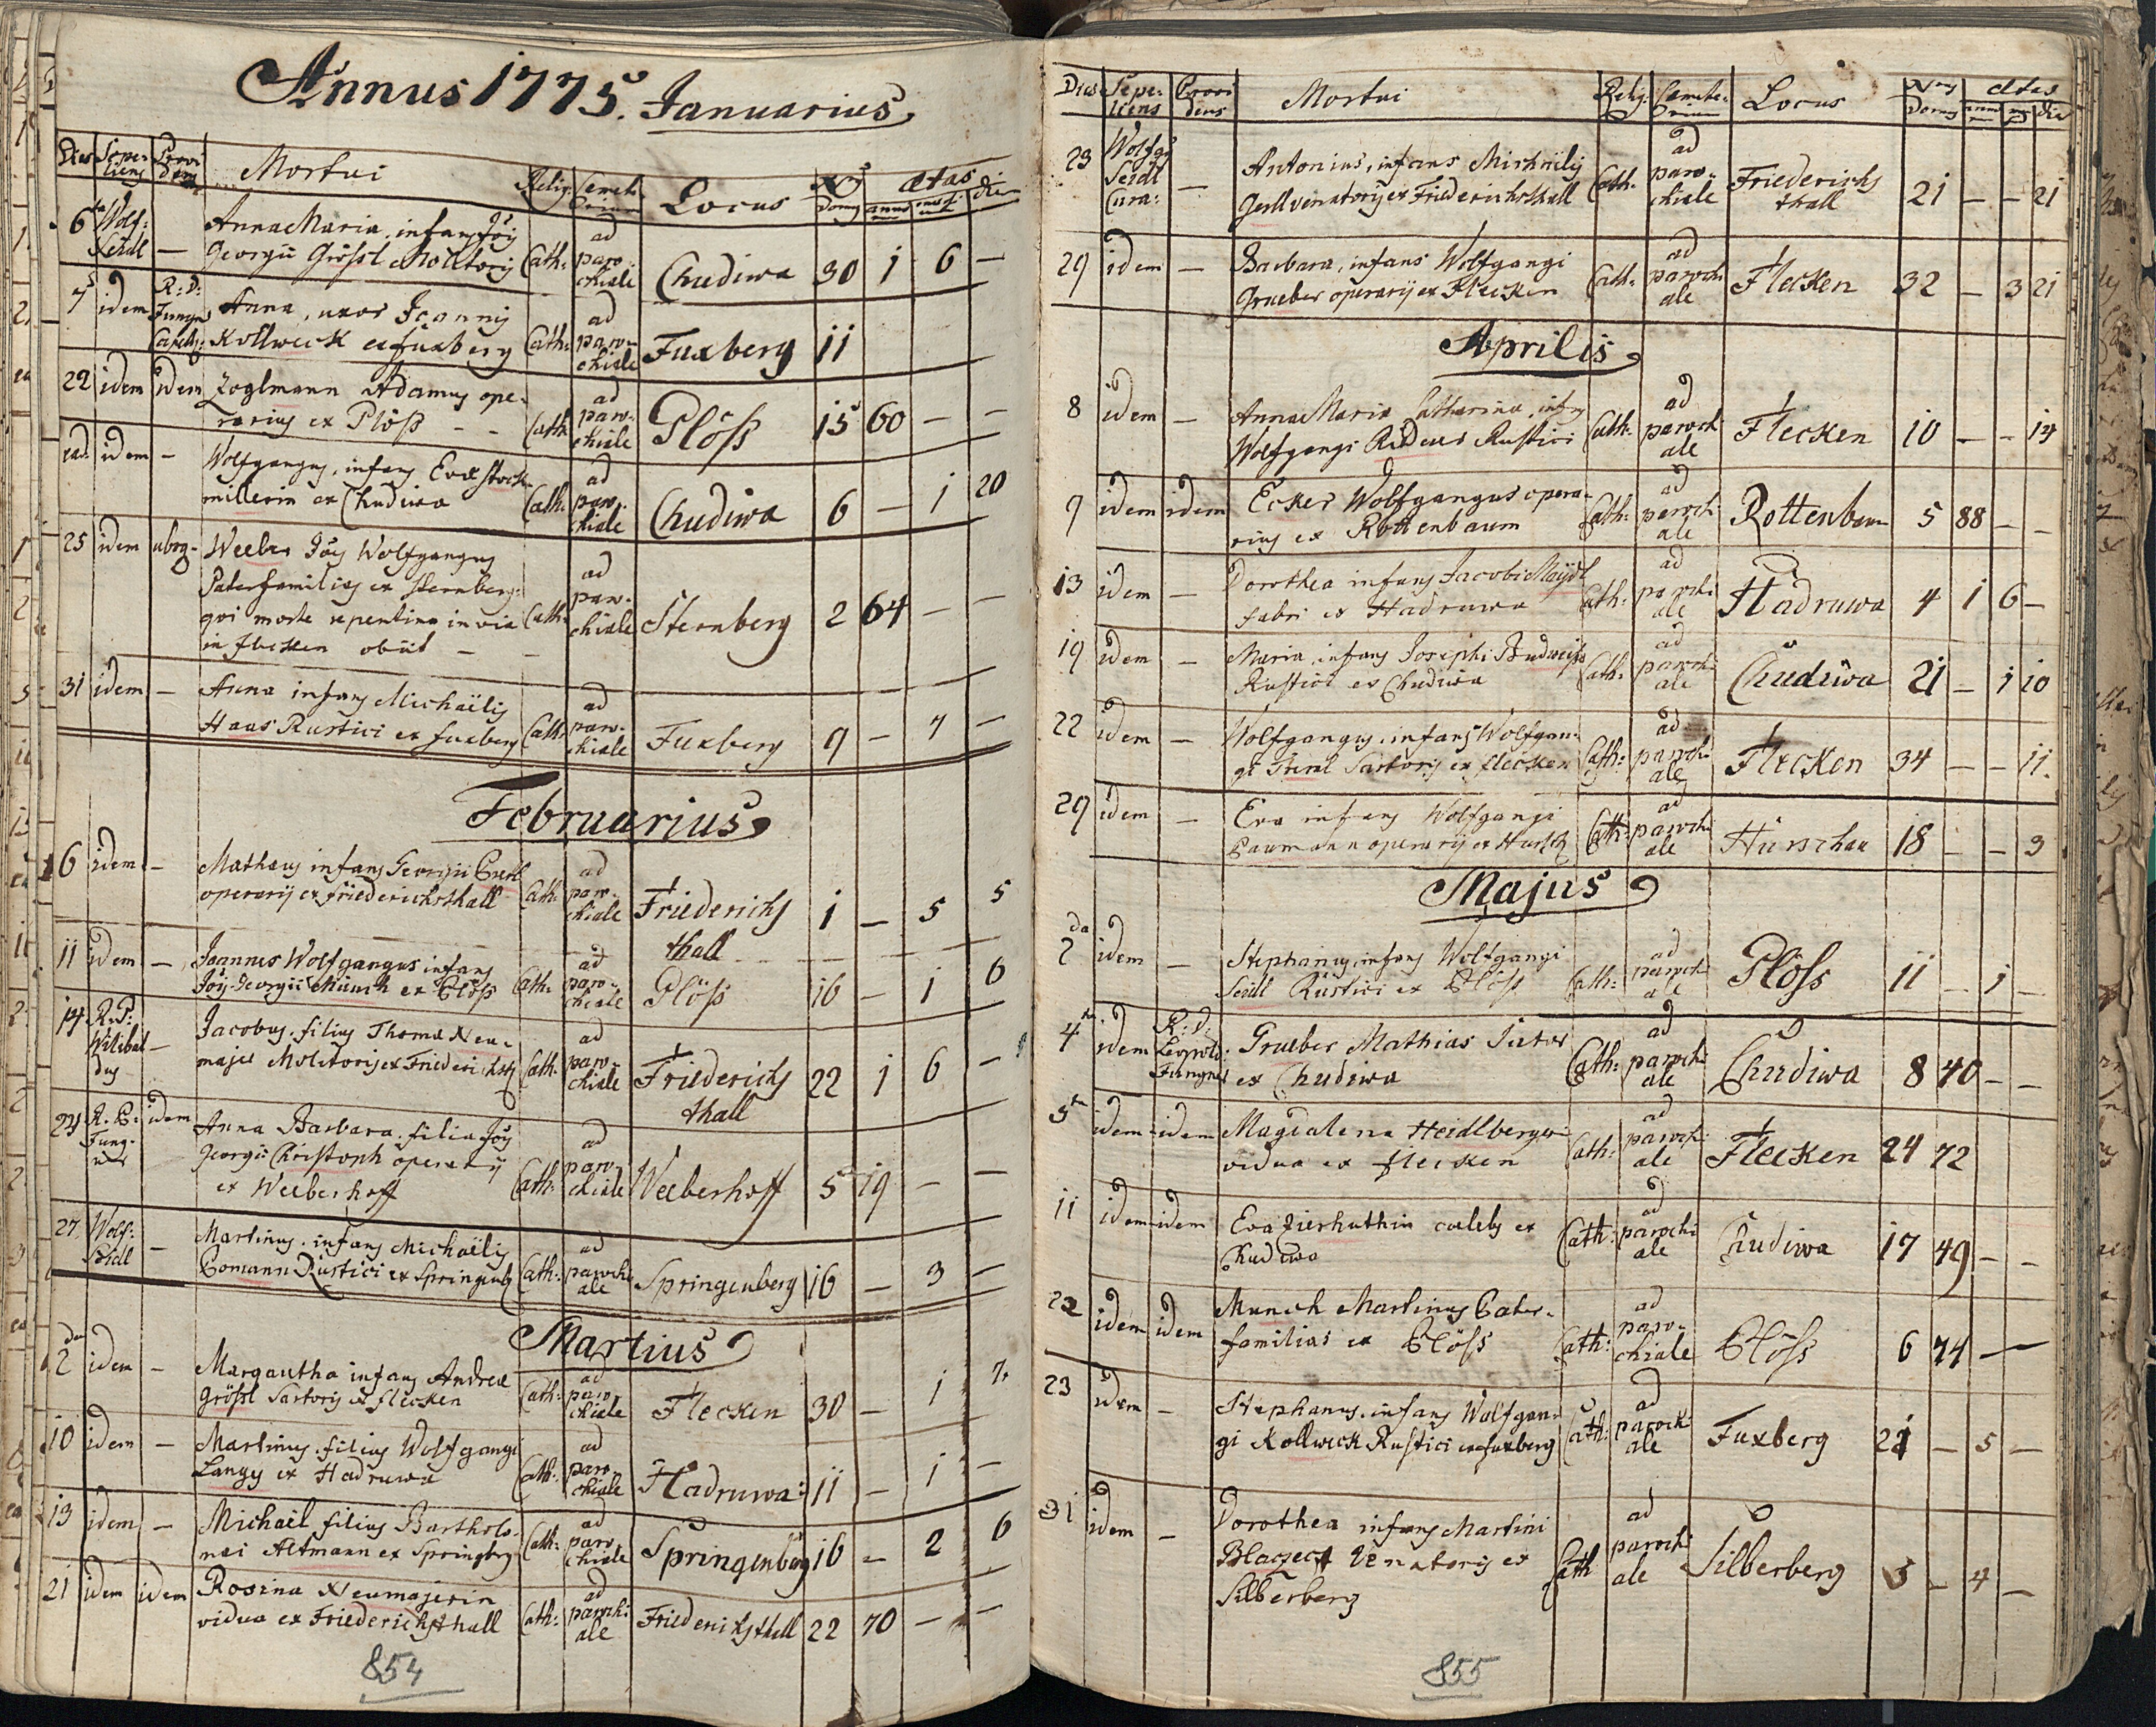 Annus 1775. Januarius
Dies Sepeliens Providens Mortui Relig: Cemeterium Locus Nrus domus ætas anni menses dies
6ta Wolf: Seidl — Anna Maria, infans Jois
Georgii Grössl Molitoris Cath: ad parochiale Chudiwa 30 1 6 —
7 idem R: D: Fungner Capell: Anna, uxor Joannis
Kollweck ex fuxberg Cath: ad parochiale Fuxberg 11
22 idem idem Zoglmann Adamus ope-
rarius ex Plöss - - Cath: ad parochiale Plöss 15 60 — —
idem —
Wolfgangus, infans Evæ Stock-
millerin ex Chudiwa Cath: ad parochiale Chudiwa 6 — 1 20
25 idem
Weeber Jois Wolfgangus
Paterfamilias ex Sternberg:
qui morte repentina in via
in flecken obiit — Cath: ad parochiale Sternberg 2 64 — —
31 idem — Anna infans Michaëlis
Haas Rustici ex fuxberg Cath: ad parochiale Fuxberg 9 — 7 —
Februarius
6 idem — Mathæus infans Georgii
operarij ex friederichsthall Cath: ad parochiale Friederichsthall 1 — 5 5
11 idem — Joannes Wolfgangus infans
Jois Georgii Münch ex Plöss Cath: ad parochiale Plöss 16 — 1 6
14 R: P: Wilibaldus — Jacobus filius Thomæ Neu-
majer Molitoris ex Friederichst Cath: ad parochiale Friederichsthall 22 1 6 —
24 R. P: Fungner idem Anna Barbara filia Jois
Georgii Christoph operarij
ex Weeberhoff Cath: ad parochiale Weeberhoff 5 19 — —
27 Wolf: Seidl — Martinus infans Michaëlis
Pomann Rustici ex Springenbg Cath: ad parochiale Springenberg 16 — 3 —
Martius
2da idem — Margaretha infans Andreæ
Grössl Sartoris ex flecken Cath: ad parochiale Flecken 30 — 1 7.
10 idem — Martinus filius Wolfgangi
Langs ex Hadruwa Cath: ad parochiale Hadruwa 11 — 1 —
13 idem — Michaël filius Bartholo-
mæi Altmann ex Springbrg Cath: ad parochiale Springenberg 16 — 2 6
21 idem idem Rosina Neumajerin
vidua ex Friederichsthall Cath: ad parochiale Friederichsthall 22 70 — —
854
Dies Sepeliens Providens Mortui Relig: Cemeterium Locus Nrus domus ætas anni menses dies
23 Wolfgs Seidl Cura: — Antonius, infans Michaëlis
venatoris ex Friederichsthall Cath: ad parochiale Friederichsthall 21 — — 21
29 idem — Barbara, infans Wolfgangi
Grueber operarij ex Flecken Cath: ad parochiale Flecken 32 — 3 21
Aprilis
8 idem — Anna Maria Catharina, infans
Wolfgangi Rustici Cath: ad parochiale Flecken 10 — — 14
9 idem idem Ecker Wolfgangus opera-
rius ex Rottenbaum Cath: ad parochiale Rottenbaum 5 88 — —
13 idem — Dorothea infans Jacobi Maydl
fabri ex Hadruwa Cath: ad parochiale Hadruwa 4 1 6 —
19 idem — Maria infans Josephi Budweiss
Rustici ex Chudiwa Cath: ad parochiale Chudiwa 21 — 1 10
22 idem — Wolfgangus, infans Wolfgan-
gi Sartoris ex flecken Cath: ad parochiale Flecken 34 — — 11.
29 idem — Eva infans Wolfgangi
Paumann operarij ex Hursch Cath: ad parochiale Hurschau 18 — — 3
Majus
2da idem — Stephanus, infans Wolfgangi
Seidl Rustici ex Plöss Cath: ad parochiale Plöss 11 — 1 —
4ta idem R: D: Leopold: Fungner Grueber Mathias Sutor
ex Chudiwa Cath: ad parochiale Chudiwa 8 40 — —
5ta idem idem Magdalena Heidlbergerin
vidua ex flecken Cath: ad parochiale Flecken 24 72
11 idem idem Eva Zierhuthin cælebs ex
Chudiwa Cath: ad parochiale Chudiwa 17 49 — —
22 idem idem Munch Martinus Pater-
familias ex Plöss Cath: ad parochiale Plöss 6 74 —
23 idem — Stephanus, infans Wolfgan-
gi Kollweck Rustici ex fuxberg Cath: ad parochiale Fuxberg 21 — 5 —
31 idem — Dorothea infans Martini
Blaczeck Venatoris ex
Silberberg Cath: ad parochiale Silberberg 5 — 4 —
855